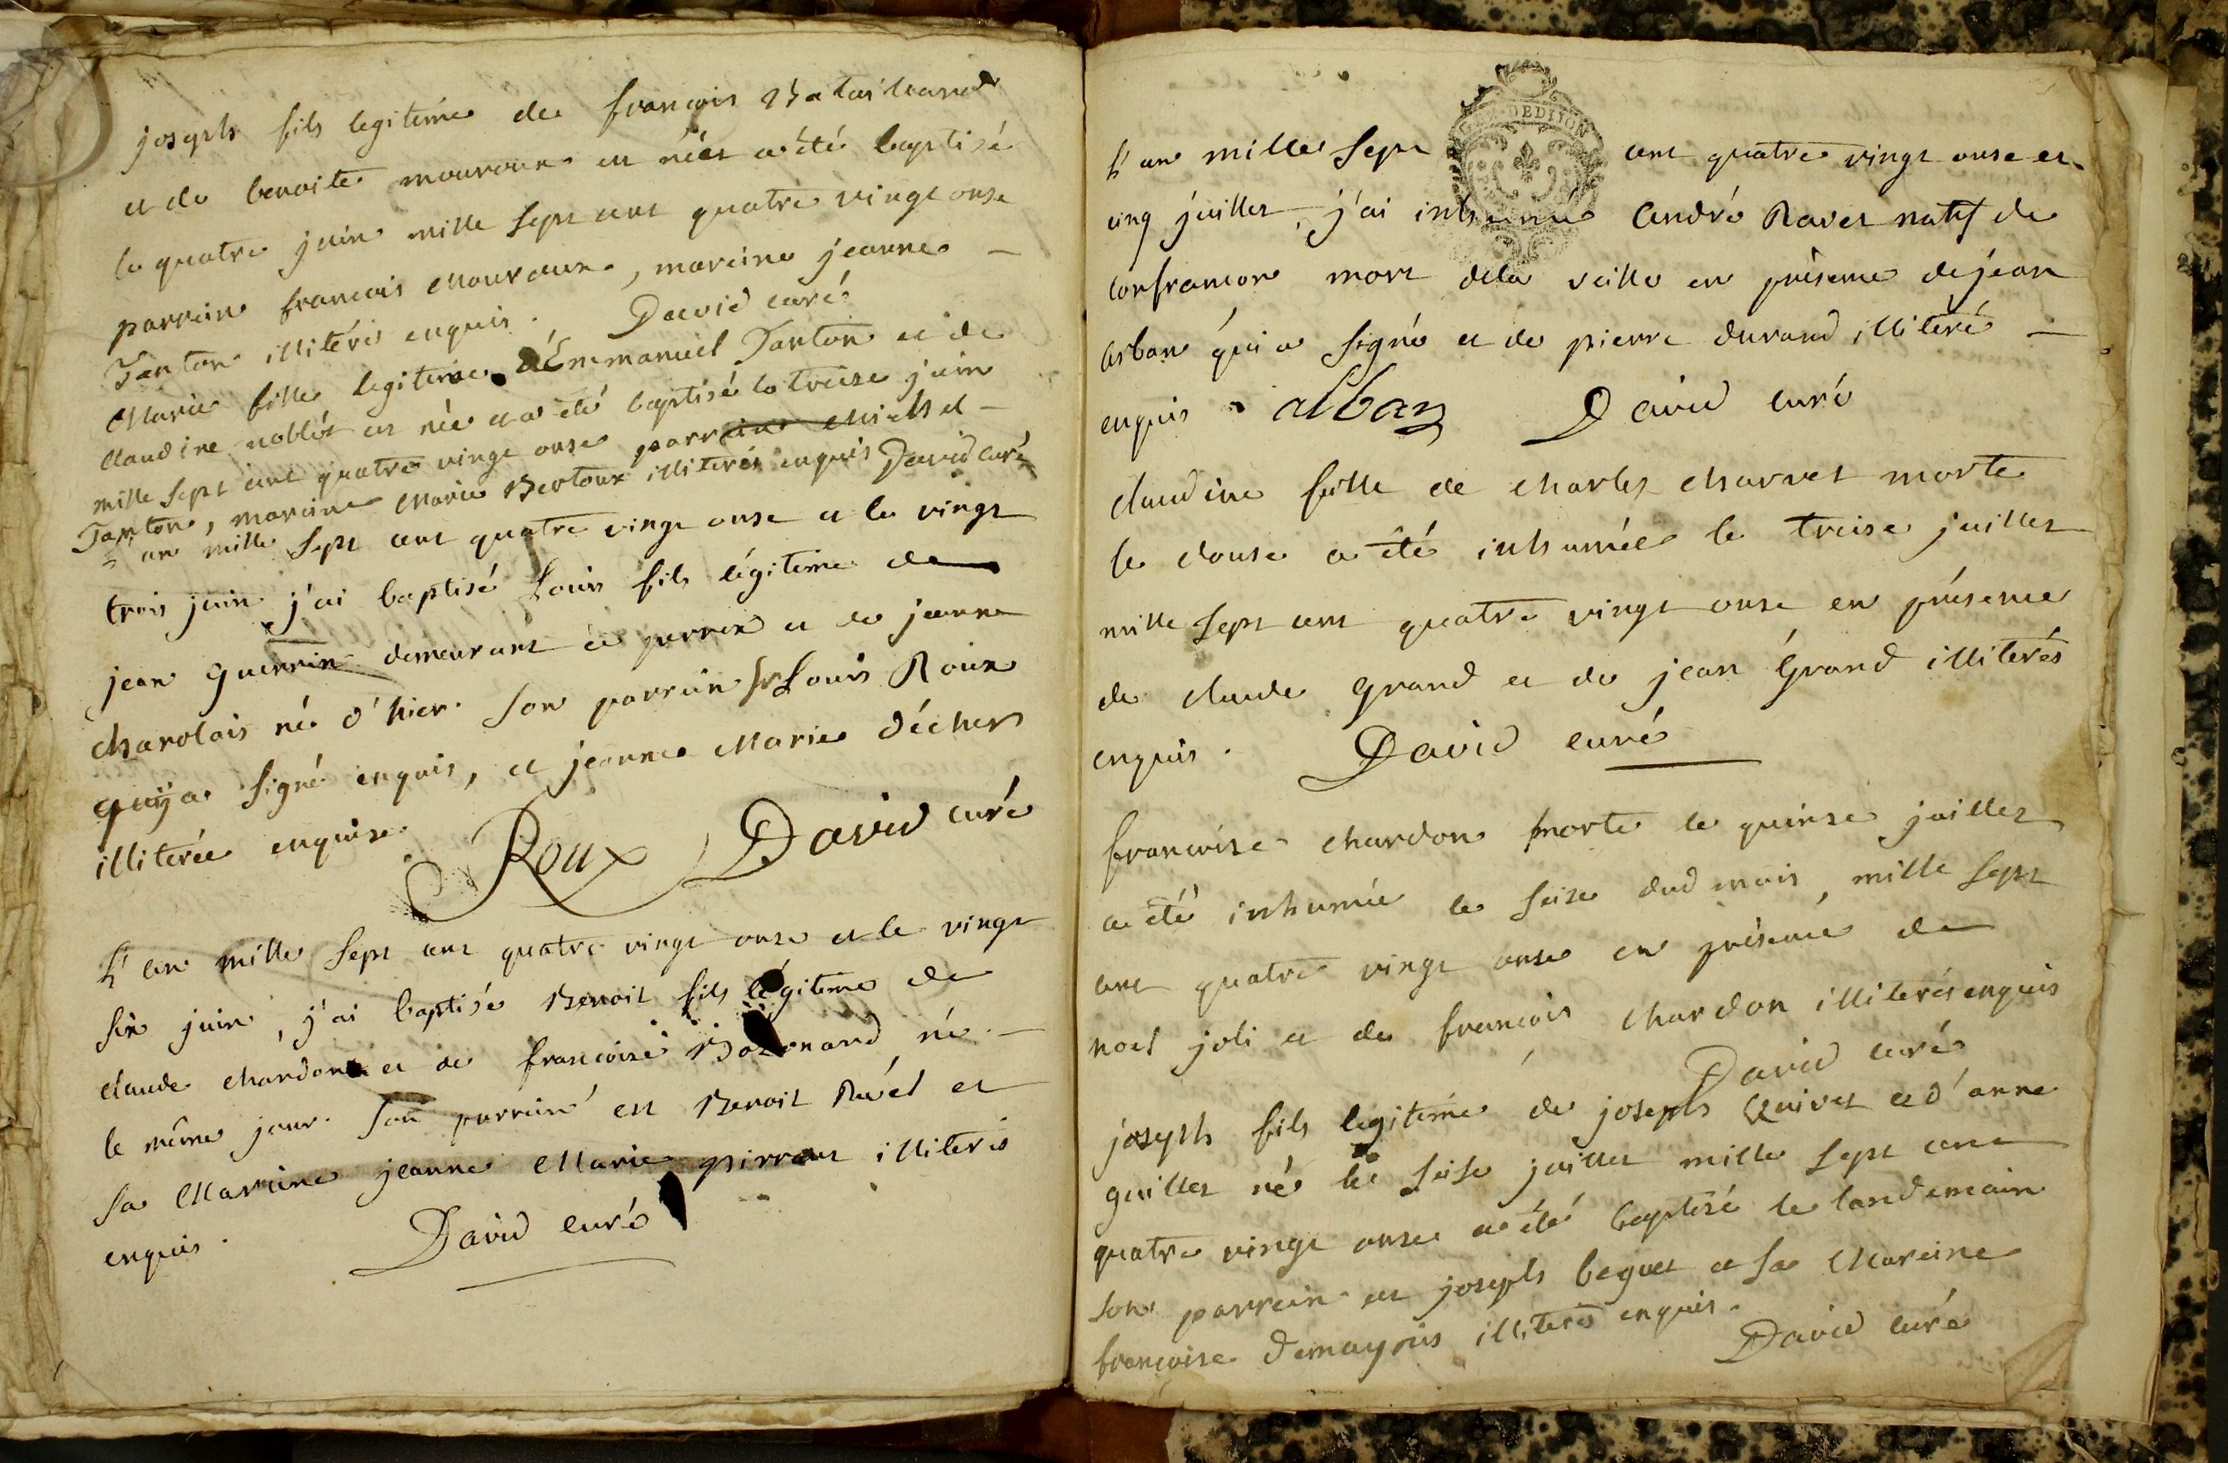 joseph fils legitime de francois Bataillard
et de benoite mouroux est néet a été baptisé
le quatre juin mille sept cent quatre vingt onse
parrain francois Mouroux, mareine jeanne –
Tanton illitérés enquis. David curé
Marie fille legitime d'Emmanuel Tanton et de
claudine noblet est née et a été baptisé le treise juin
mille sept cent quatre vingt onse parrain Michel –
Tanton, mareine Marie Bertoux illiterés enquis David curé
L'an mille sept cent quatre vingt onse et le vingt
trois juin j'ai baptisé Louis fils légitime de
jean Guerrin demeurant à perrex et de jeanne
charolais né d'hier. son parrain Sr Louis Roux
quÿ a signé enquis, et jeanne Marie déchers
illiterée enquise.
Roux David curé
L'an mille sept cent quatre vingt onse et le vingt
six juin, j'ai baptisé Benoit fils légitime de
claude chardon et de francoise Bornard né –
le même jour. son parrain est Benoit Ravet et
sa Mareine jeanne Marie pirraut illiteris
enquis.
David curé
GEN. DE DIJON
L'an mille sept cent quatre vingt onse et
cinq juillet, j'ai inhumé André Ravet natif de
confrancon mort dela veille en présence de jean
alban qui a signé et de pierre durand illitéré –
enquis. alban David curé
claudine fille de charles charvet morte
le douse a été inhumée le treise juillet
mille sept cent quatre vingt onse en présence
de claude grand et de jean Grand illiterés
enquis. David curé
francoise chardon morte le quinse juillet
a été inhumée le seise dud mois, mille sept
cent quatre vingt onse en présence de
noel joli et de francois chardon illiterés enquis
David curé
joseph fils legitime de joseph Quivet et d'anne
guillet né le seise juillet mille sept cent
quatre vingt onse a été baptisé le landemain
son parrain est joseph beguet et sa Mareine
francoise demayris illiterés enquis.
David curé